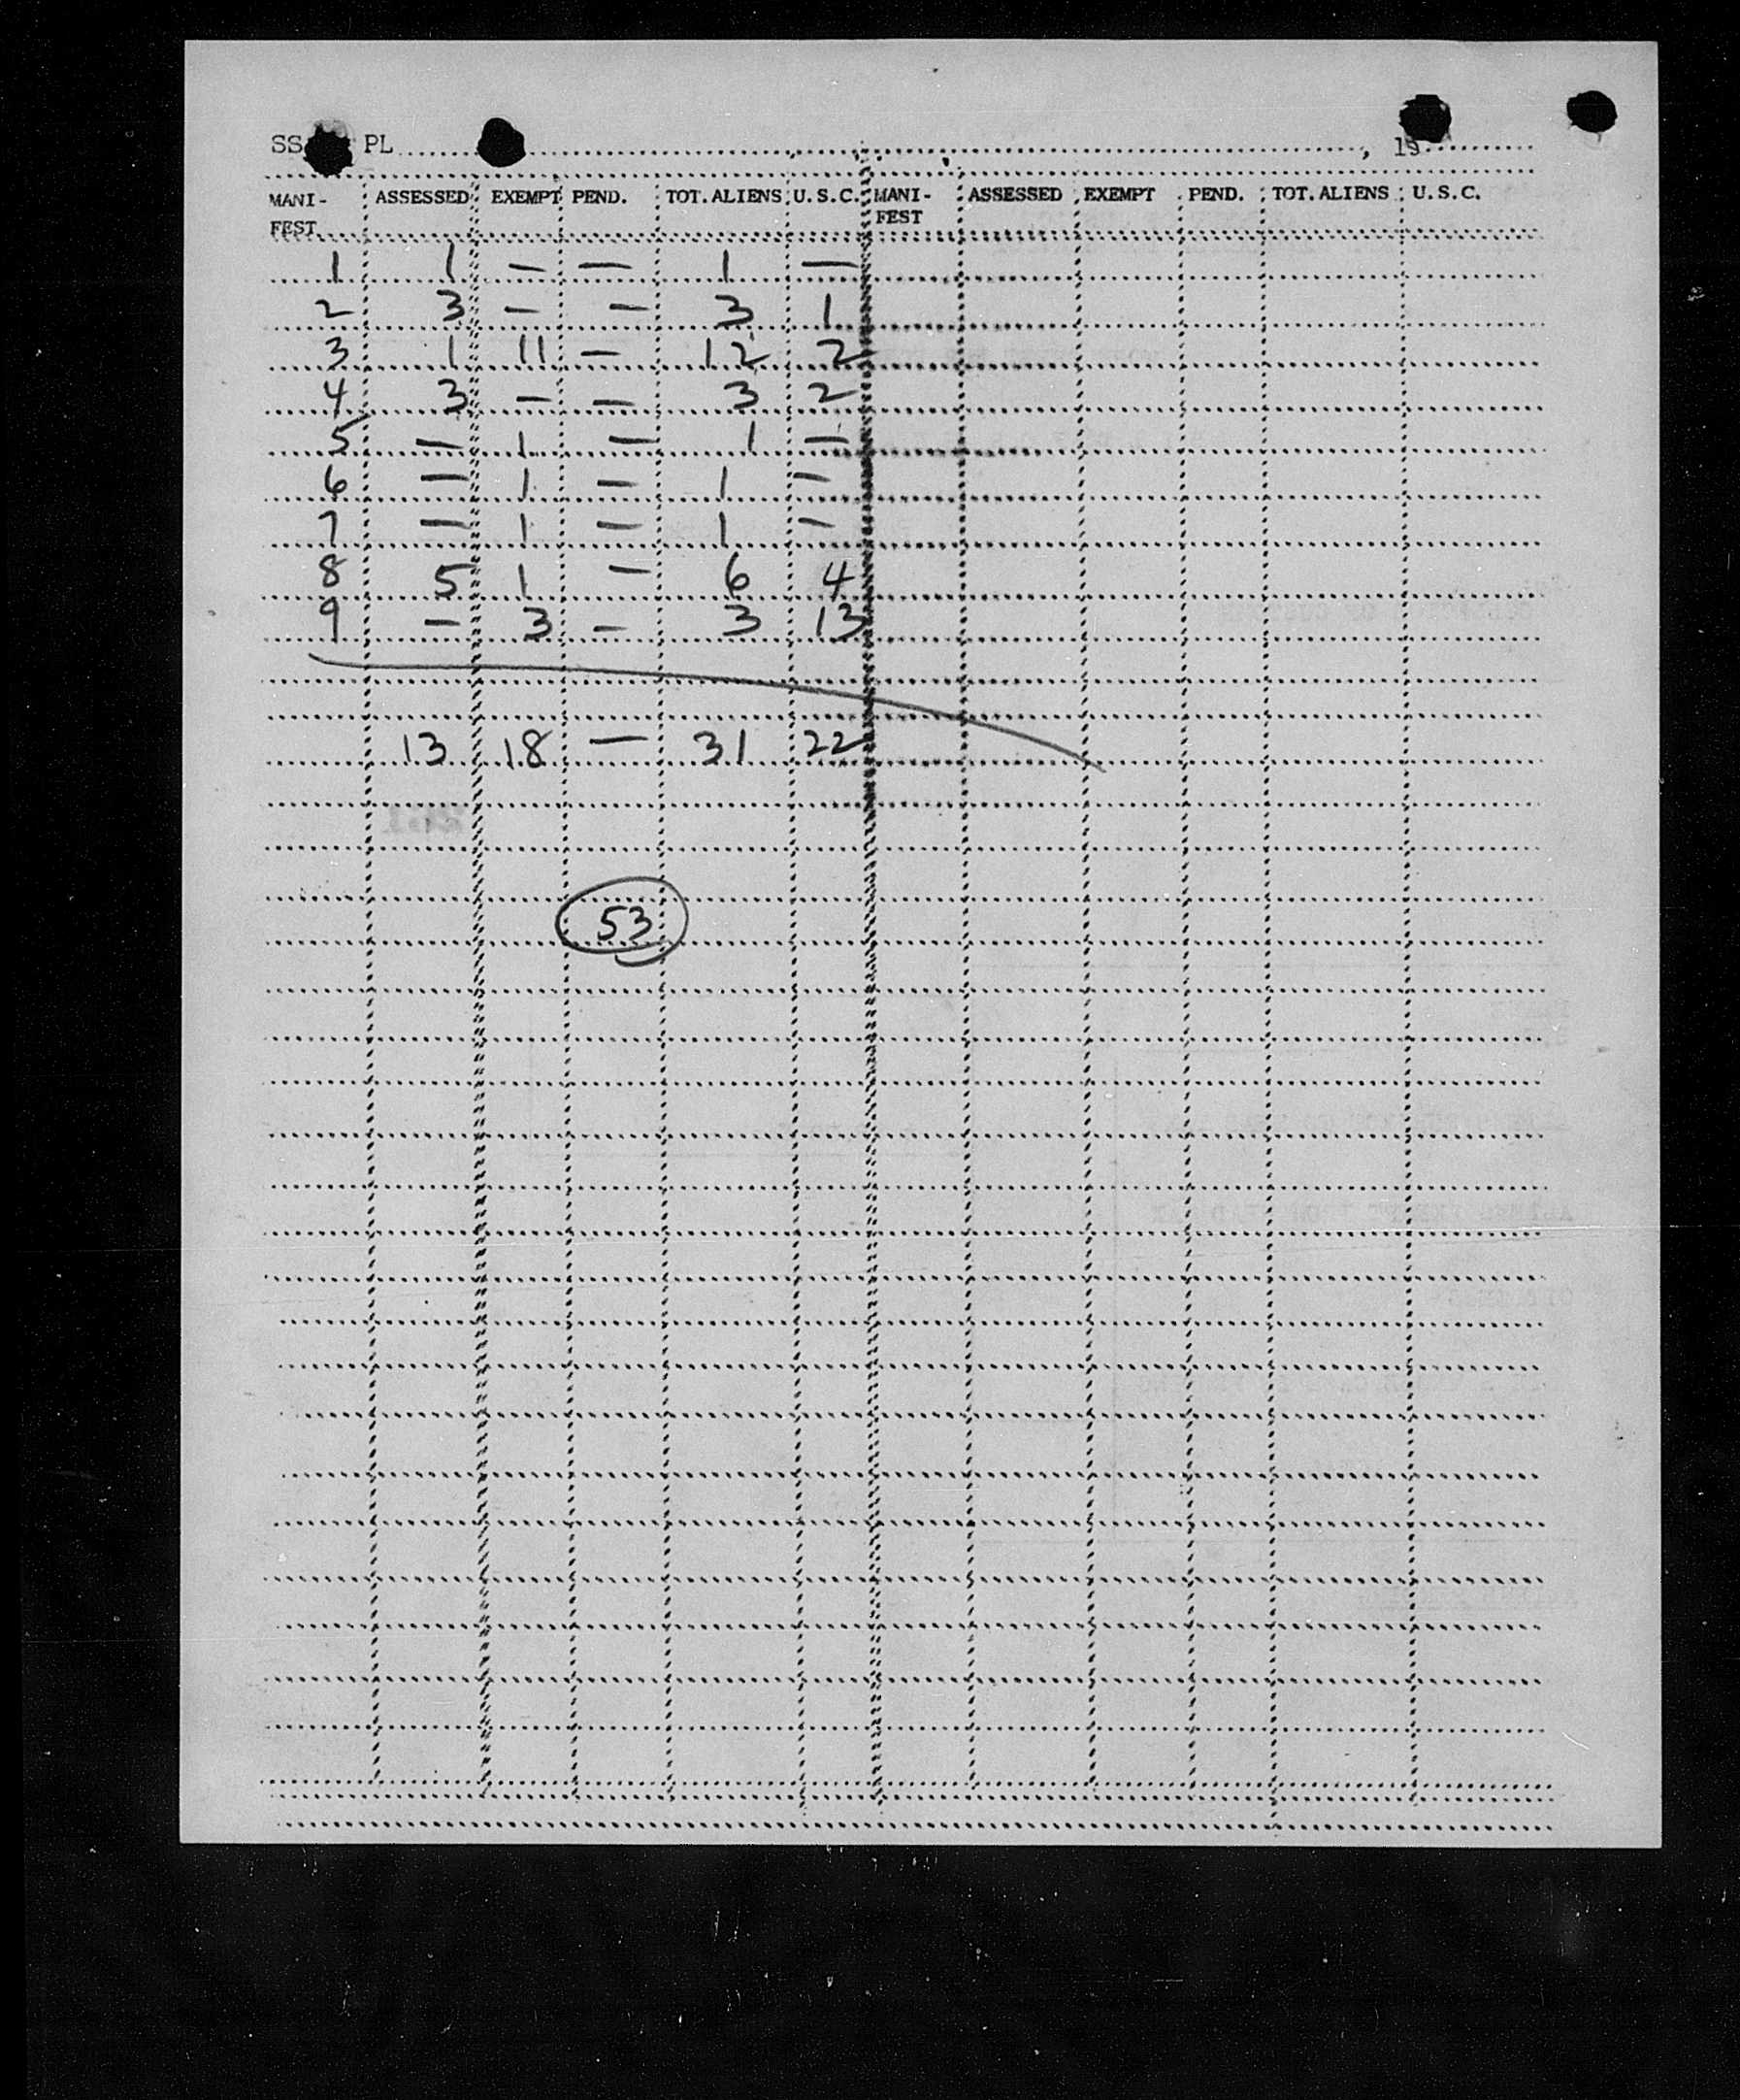 SS PL , 19
MANI- ASSESSED EXEMPT PEND. TOT. ALIENS U. S. C. MANI- ASSESSED EXEMPT PEND. TOT. ALIENS U. S. C.
FEST FEST
1 1 — — 1 —
2 3 — — 3 1
3 1 11 — 12 2
4 3 — — 3 2
5 — 1 — 1 —
6 — 1 — 1 —
7 — 1 — 1 —
8 5 1 — 6 4
9 — 3 — 3 13
13 18 — 31 22
53